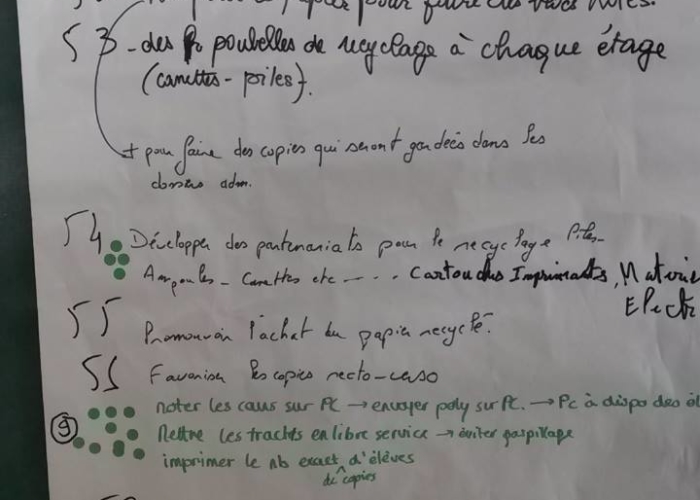 pour faire des
53 - des poubelles de recyclage à chaque étage
(canettes - piles).
+ pour faire des copies qui seront gardées dans les
dossiers adm.
54 Développer des partenariats pour le recyclage Piles -
Ampoules - Canettes etc - - - . Cartouches Imprimantes, Matérie
Electr
55 Promouvoir l'achat du papier recyclé.
Favoriser les copies recto-verso
noter les cours sur PC → envoyer poly sur PC. → Pc à dispo des él
9 Mettre les tracts en libre service → éviter gaspillage
imprimer le nb exact d'élèves
de copies